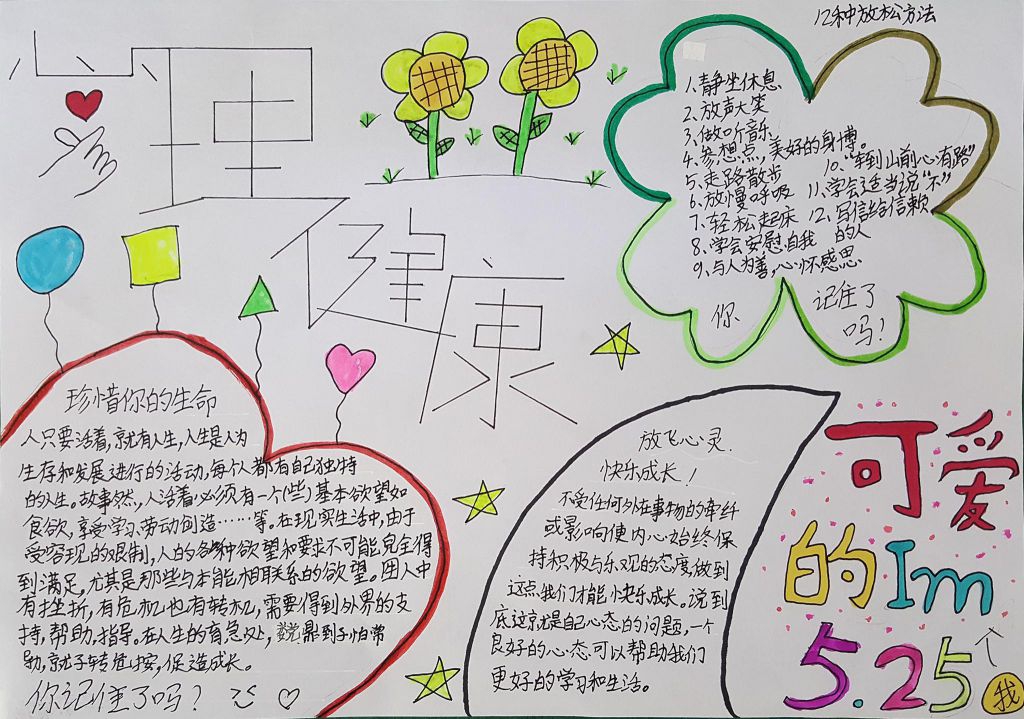 心理
健康
12种放松方法
1.静坐休息
2.放声大笑
3.做听音乐
4.参想点,美好的身博。
5.走路散步
6.放慢呼吸
7.轻松起床
8.学会安慰自我
9.与人为善,心怀感恩
10.“车到山前心有路”
11.学会适当说“不”
12.写信给信赖
的人
你
记住了
吗!
珍惜你的生命
人只要活着,就有人生,人生是人为
生存和发展进行的活动,每个人都有自己独特
的人生。故事然,人活着必须有一个(些)基本欲望如
食欲,享受学习、劳动创造……等。在现实生活中,由于
受客观的限制,人的各种欲望和要求不可能完全得
到满足,尤其是那些与本能相联系的欲望。因人中
有挫折,有危机也有转机,需要得到外界的支
持,帮助,指导。在人生的危急处,
就转危接,促进成长。
你记住了吗?
放飞心灵.
快乐成长!
不受任何外在事物的牵纤
或影响使内心始终保
持积极与乐观的态度,做到
这点,我们才能快乐成长。说到
底这就是自己心态的问题,一个
良好的心态可以帮助我们
更好的学习和生活。
可爱
的Im
5.25个
我